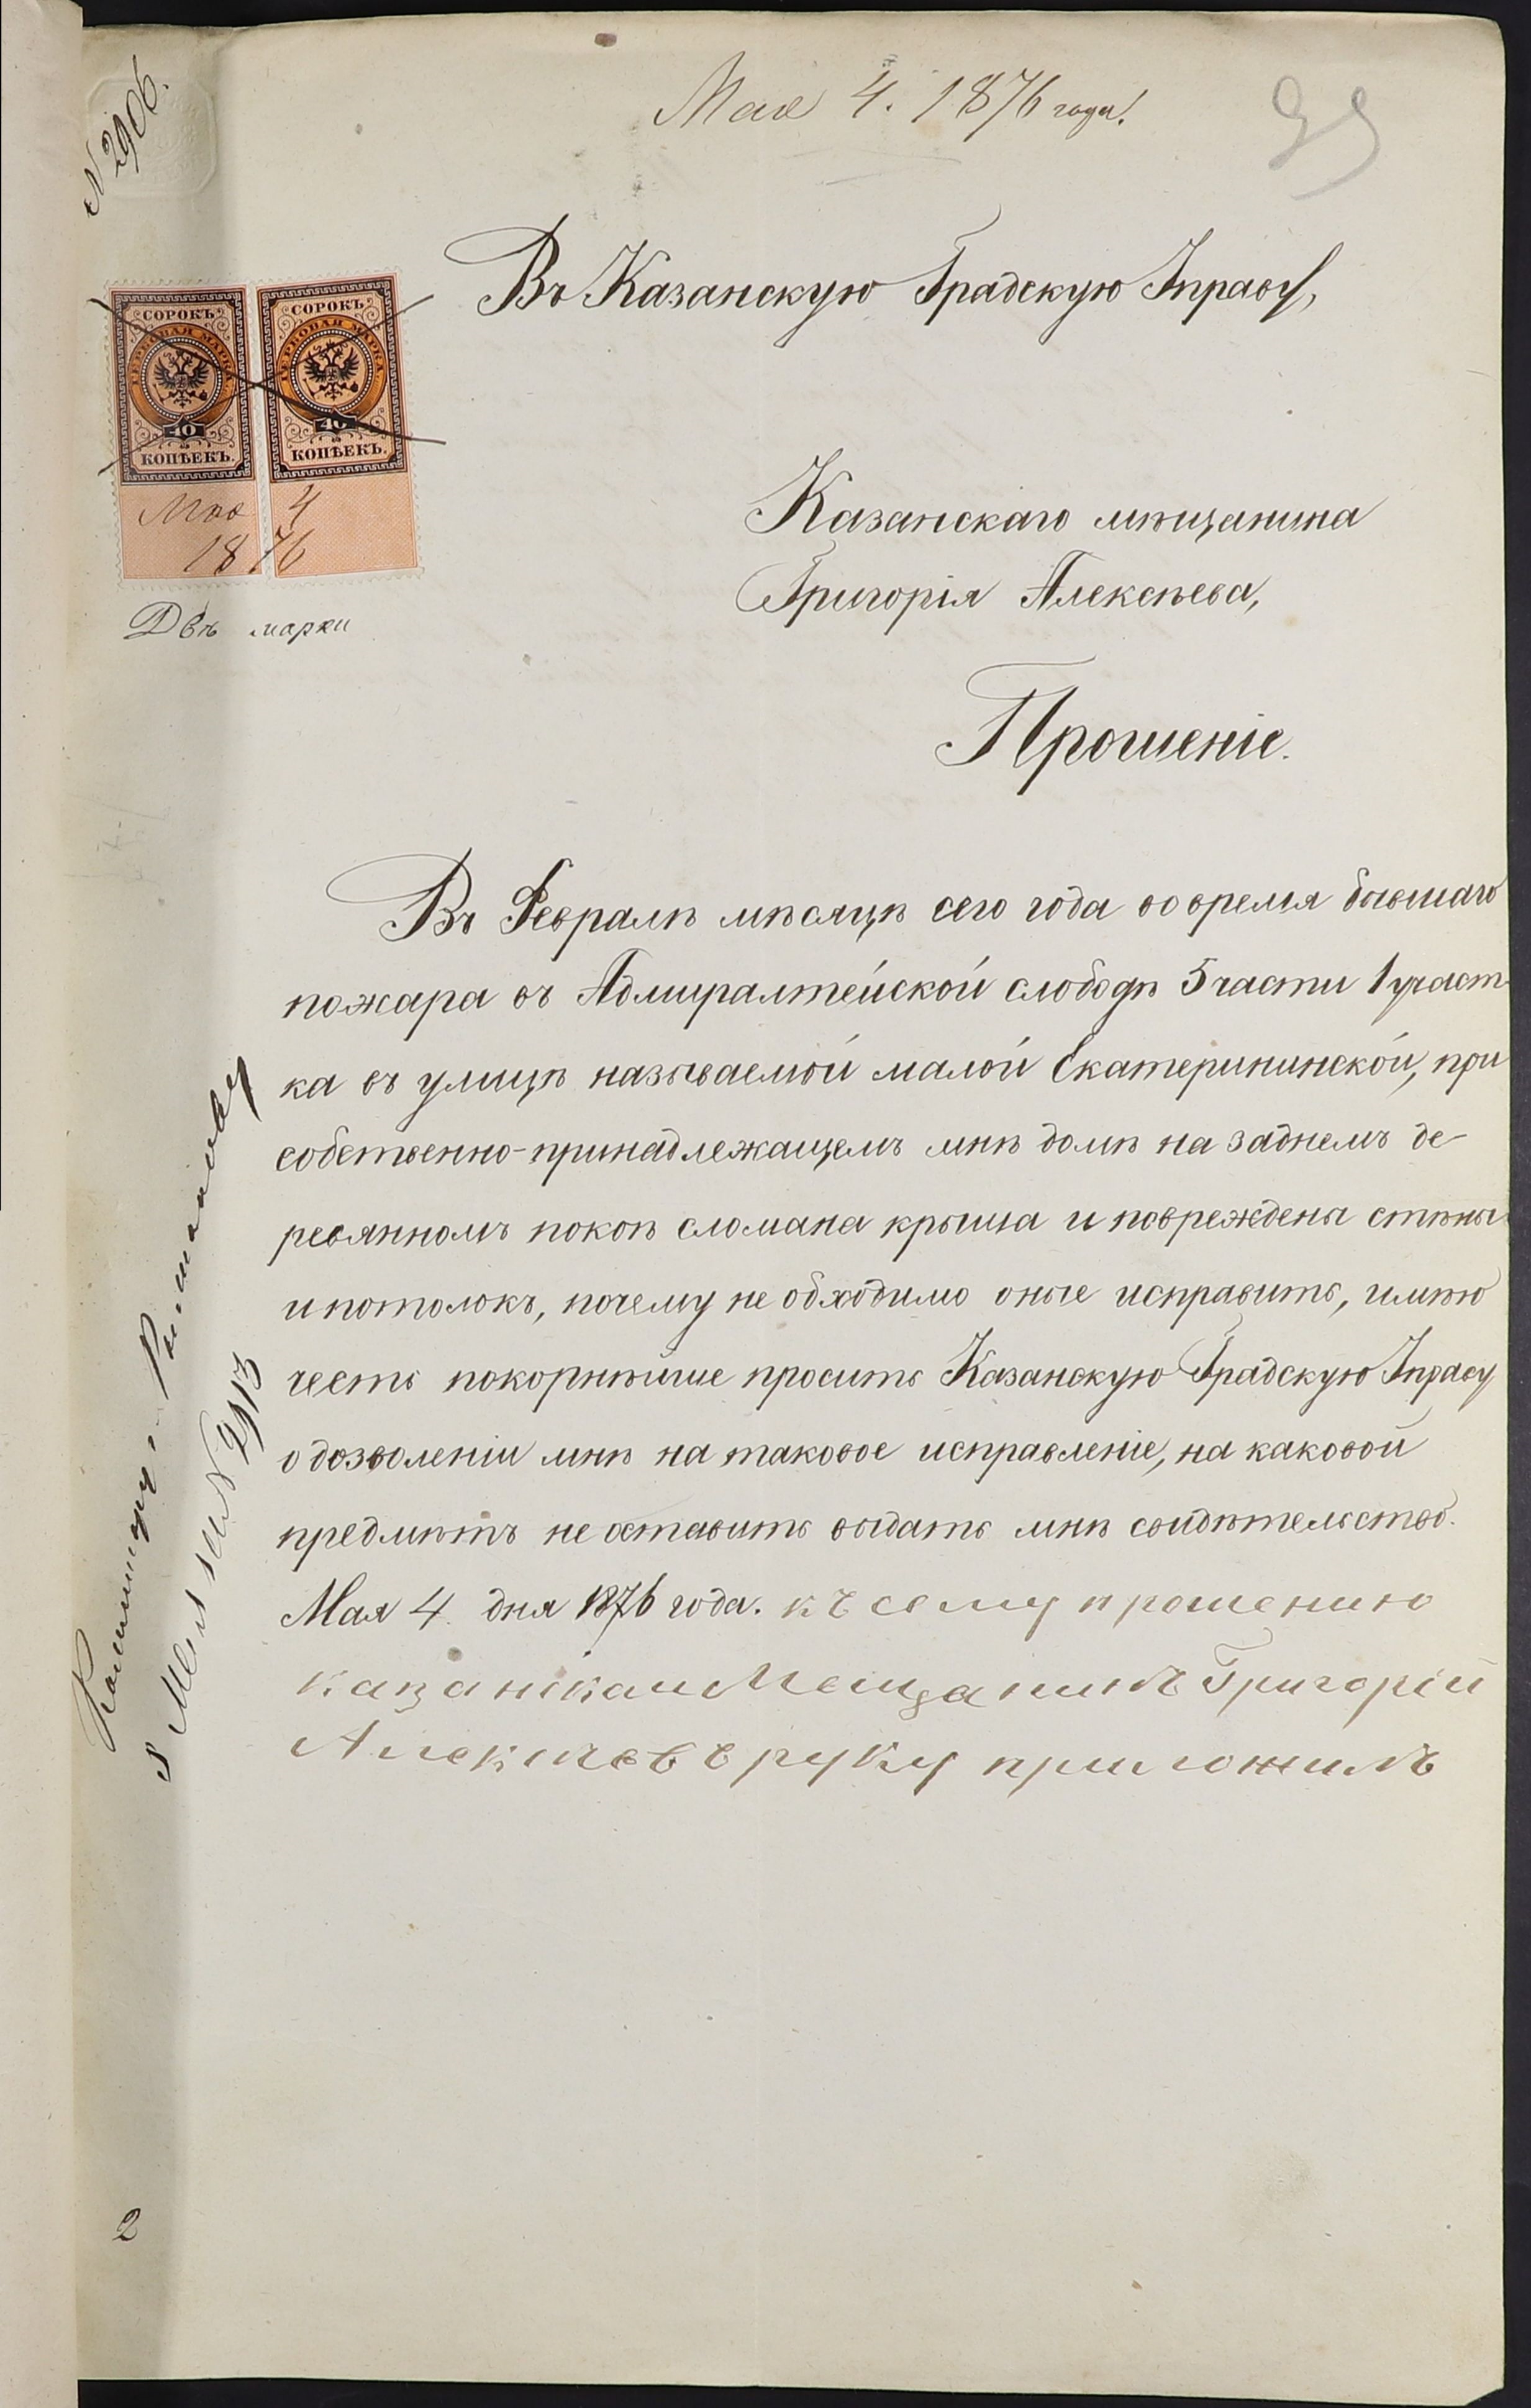 Мая 4. 1876 года.
N 2906.
Въ Казанскую Градскую Управу,
СОРОКЪ СОРОКЪ
ГЕРБОВАЯ МАРКА ГЕРБОВАЯ МАРКА
40 40
КОПѢЕКЪ. КОПѢЕКЪ.
Мая 4
1876
Двѣ марки
Казанскаго мѣщанина
Григорія Алексѣева,
Прошеніе.
Въ Февралѣ мѣсяцѣ сего года во время бывшаго
пожара въ Адмиралтейской слободѣ 5 части 1 участ-
ка въ улицѣ называемой малой Екатерининской, при
собственно-принадлежащемъ мнѣ домѣ на заднемъ де-
ревянномъ покоѣ сломана крыша и повреждены стѣны
и потолокъ, почему не обходимо оные исправить, имѣю
честь покорнѣйше просить Казанскую Градскую Управу
о дозволеніи мнѣ на таковое исправленіе, на каковой
предмѣтъ не оставить выдать мнѣ свидѣтельство.
Мая 4 дня 1876 года. къ сему прошению
казанскаи Мещанинъ Григорій
Алексѣевъ руку приложилъ
N 2913
2